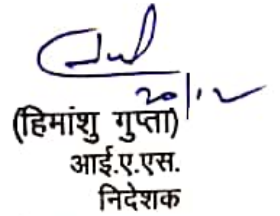 20/12
(हिमांशु गुप्ता)
आई.ए.एस.
निदेशक